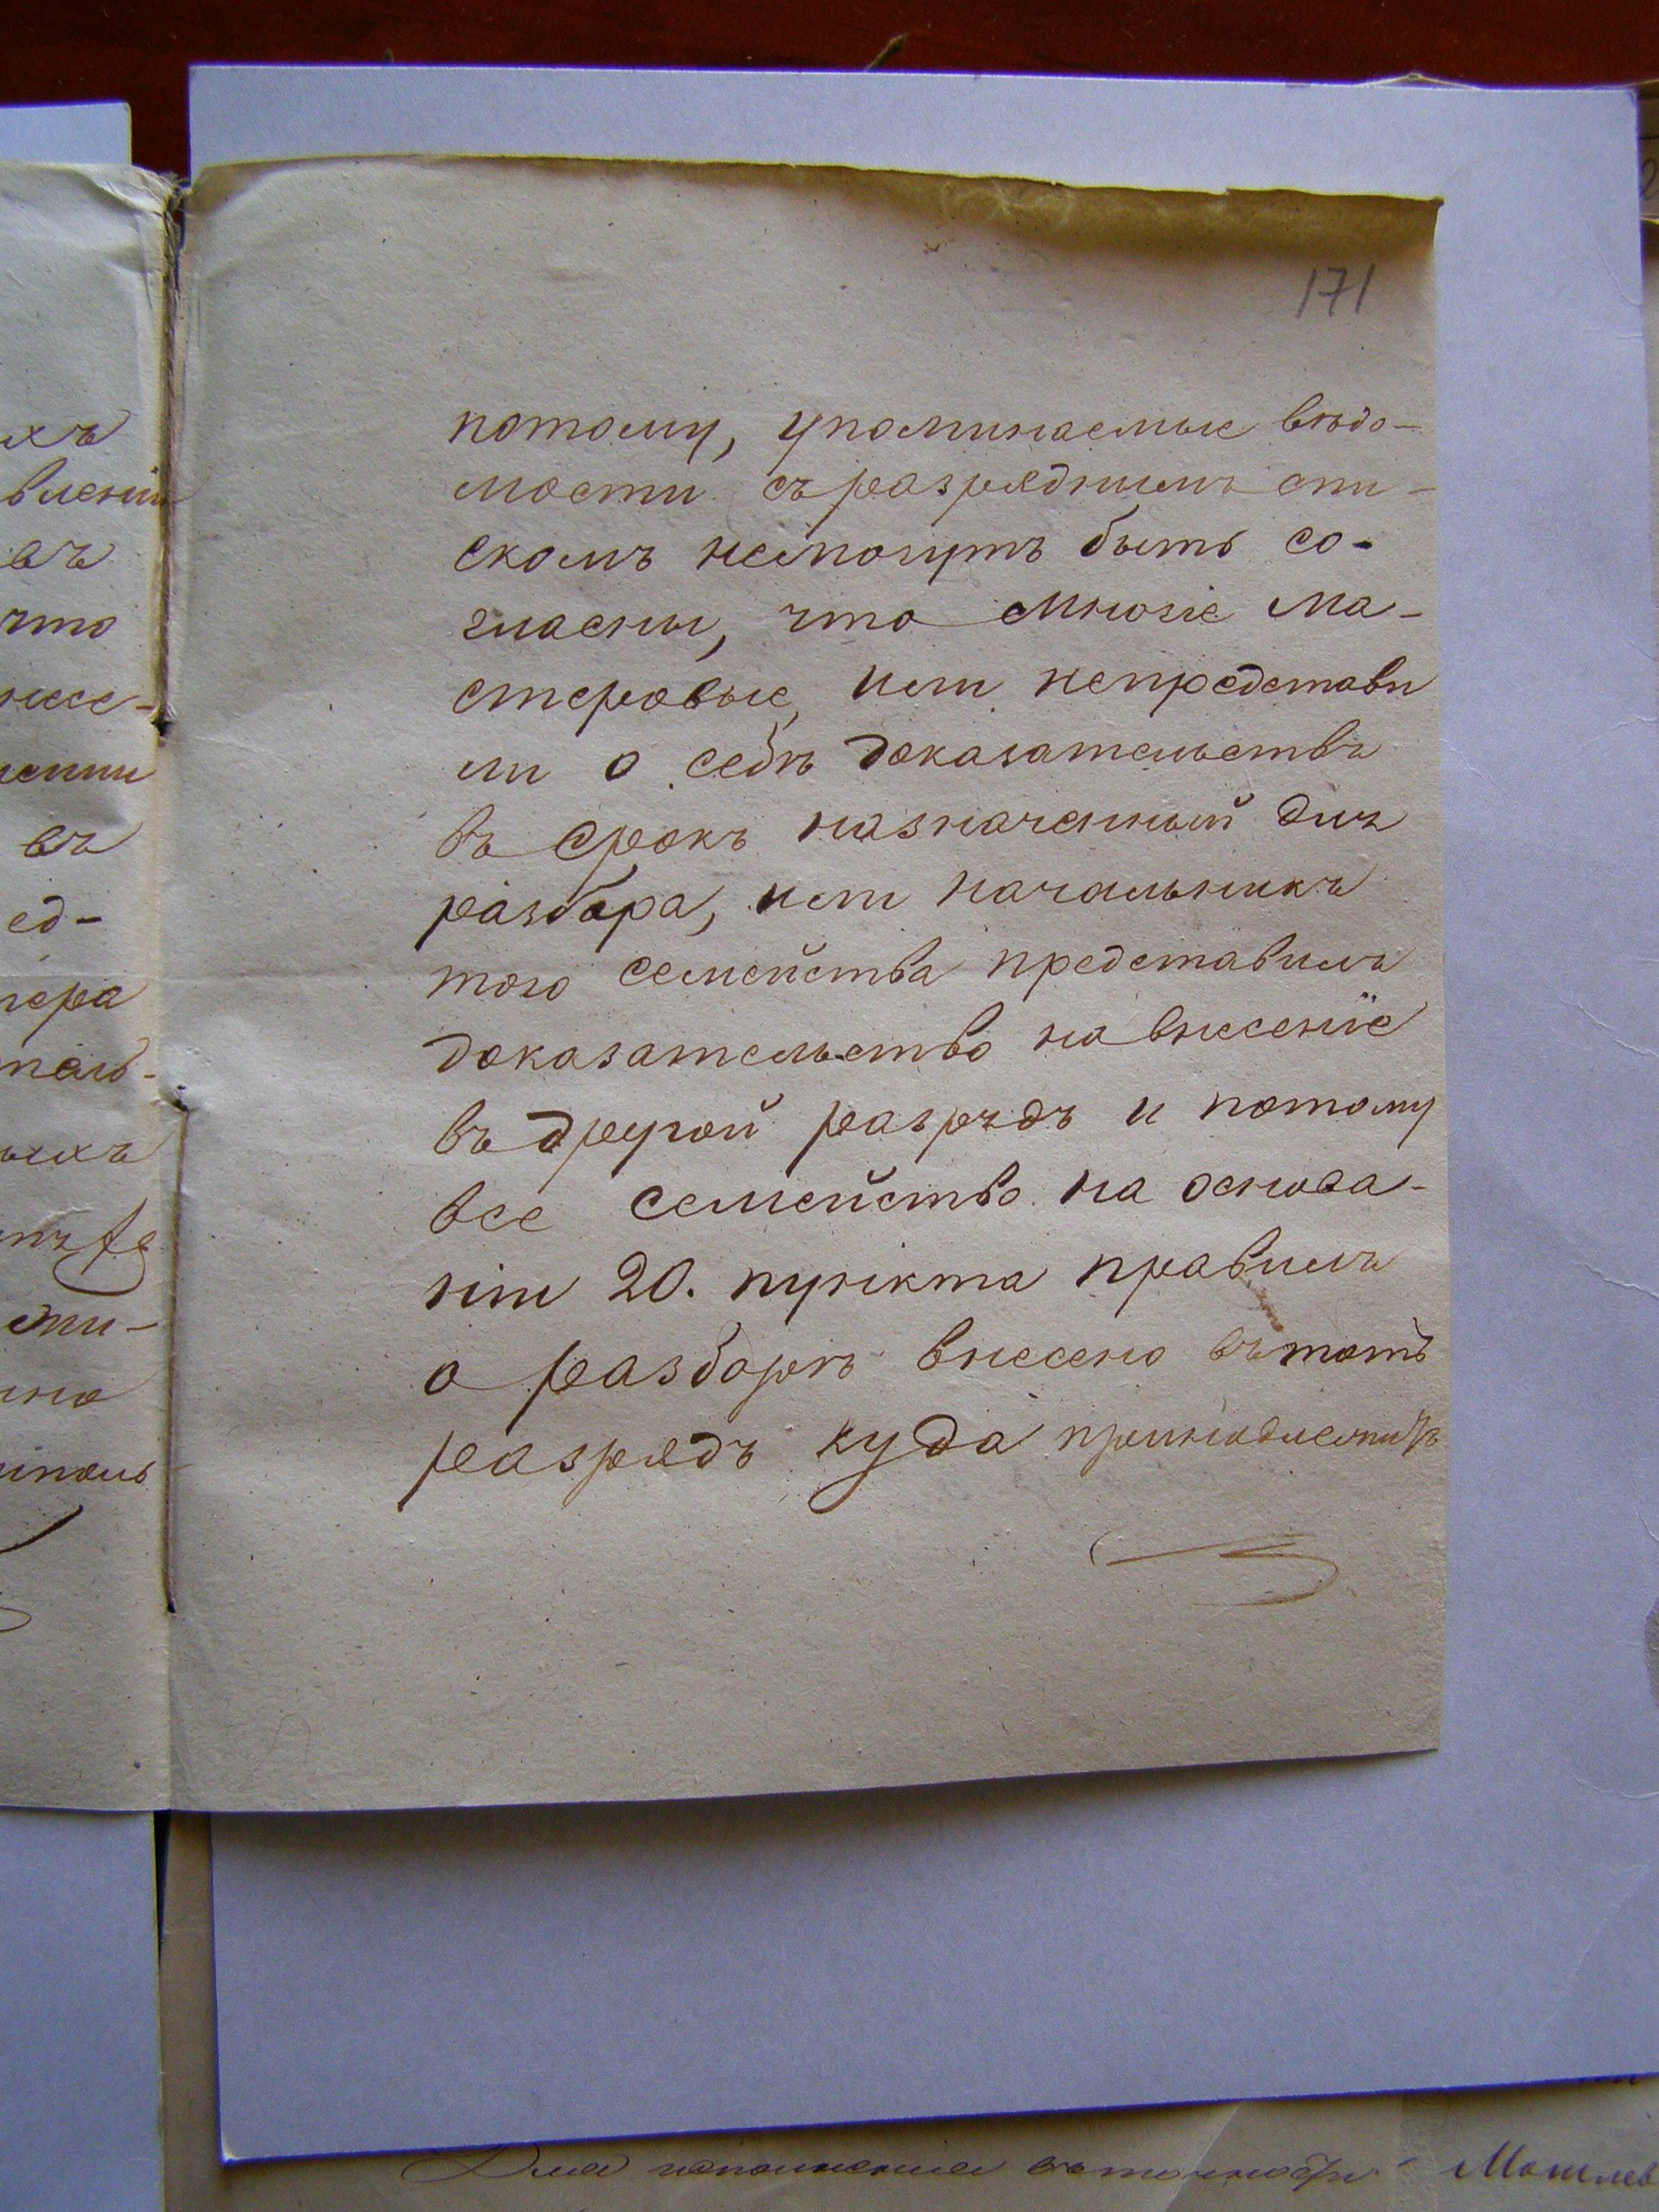 171
хъ
вленіи
въ
что
несе-
въ
ед-
ыхъ
потому, упоминаемые вѣдо-
мости съ разряднымъ спи-
скомъ немогутъ быть со-
гласны, что Многіе Ма-
стеровые, или непредстави
ли о себѣ доказательствъ
въ срокъ назначенный для
разбора, или начальникъ
того семейства представилъ
доказательство на внесеніе
въ другой разрядъ и потому
все семейство на основа-
ніи 20. пункта правилъ
о разборѣ внесено въ тотъ
разрядъ куда принадлежитъ
Для исполненія въ точности Могилев